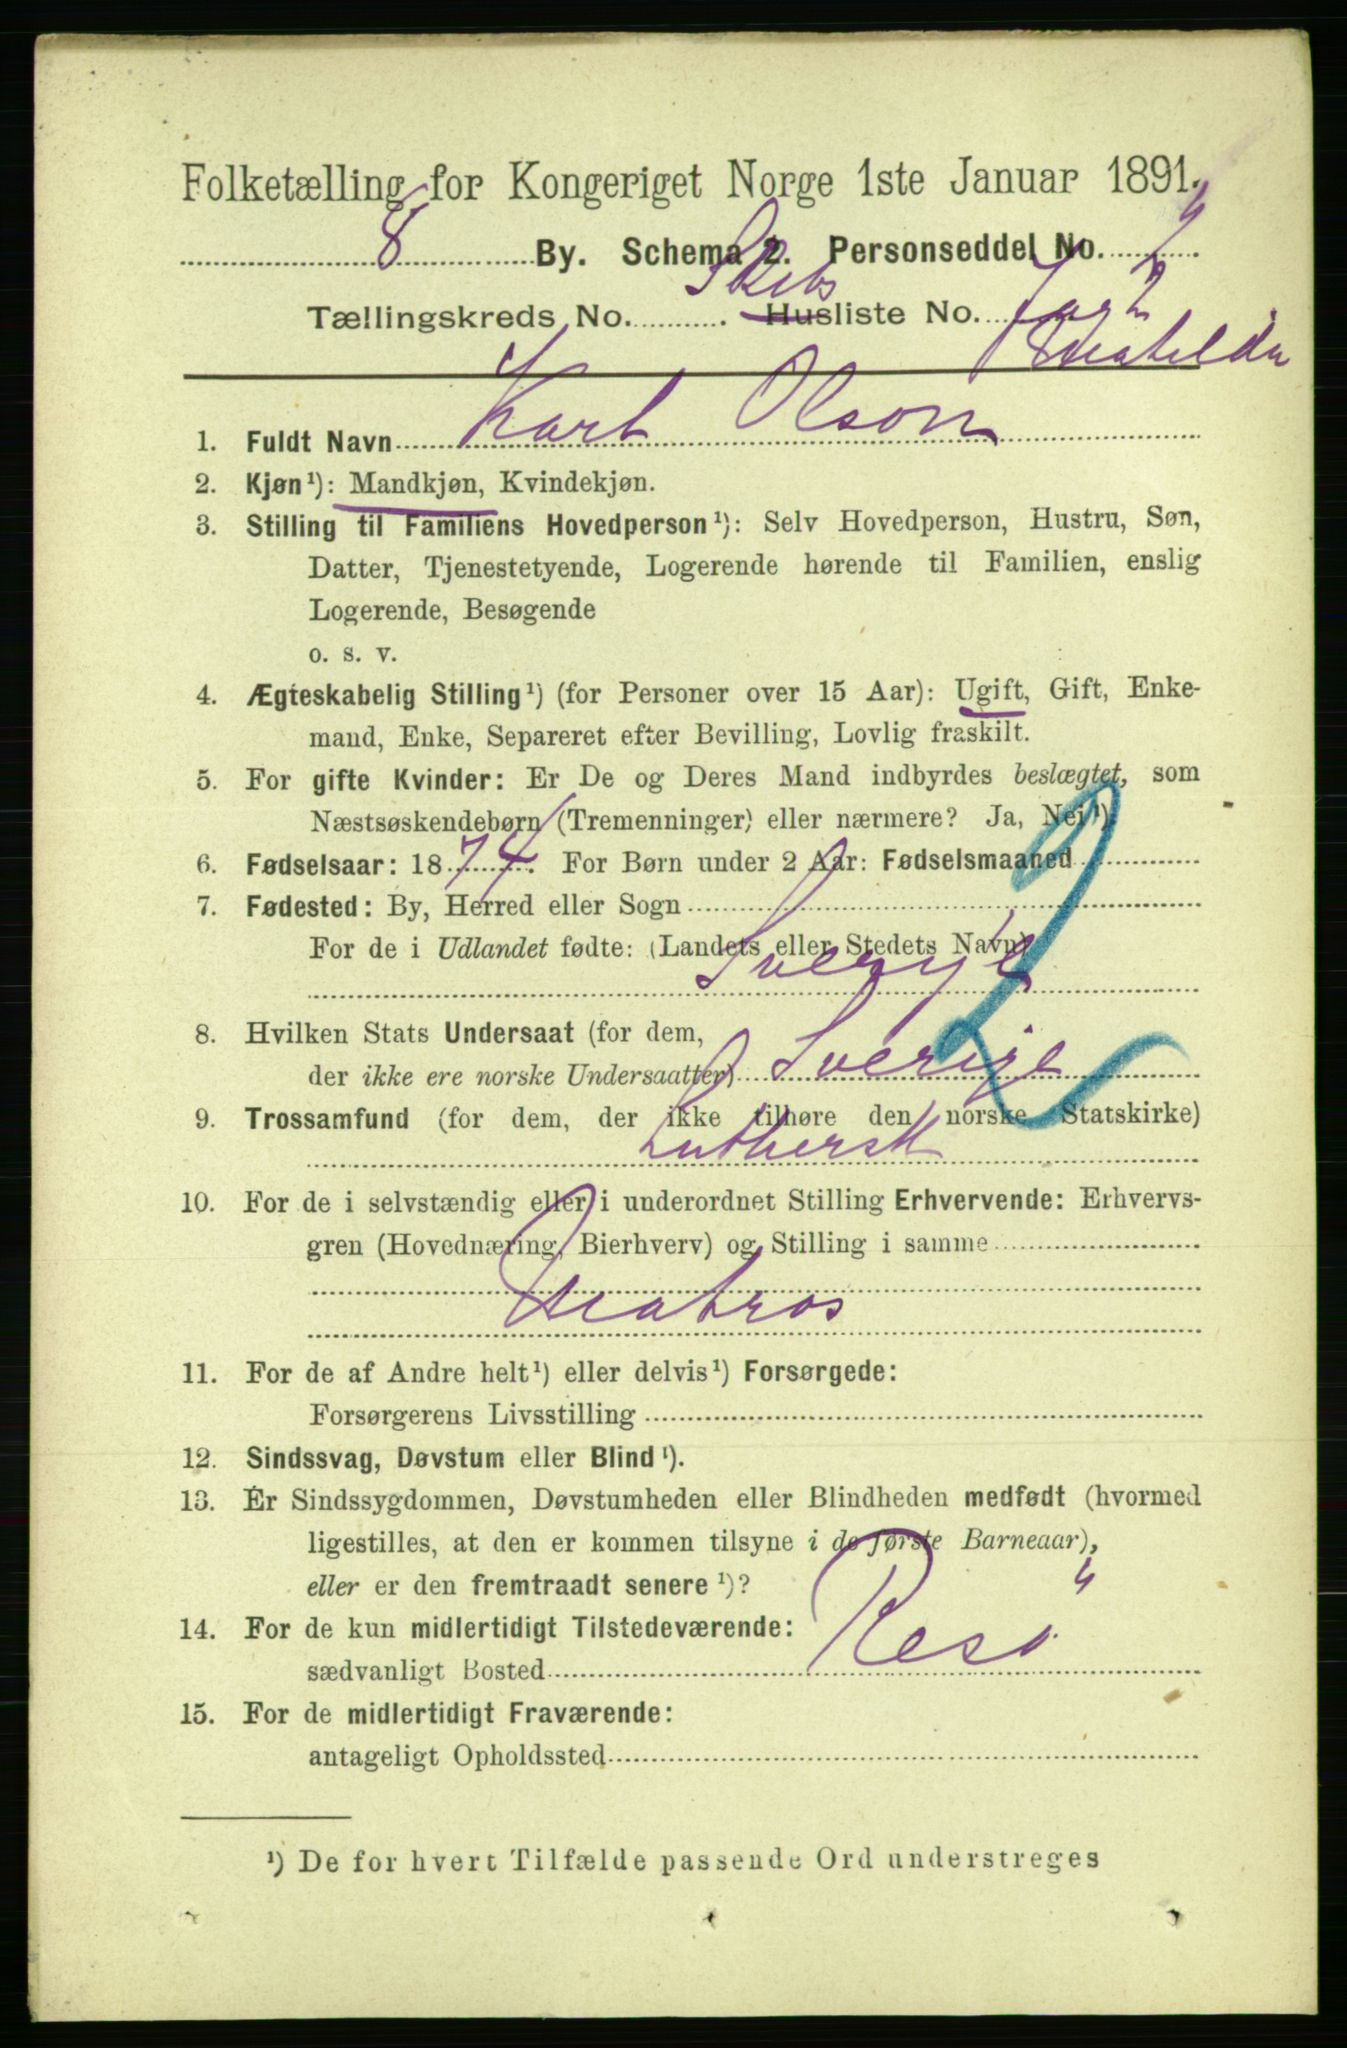 Folketælling for Kongeriget Norge 1ste Januar 1891.
8 By. Schema 2. Personseddel No. 4
Tællingskreds No. Skibs Husliste No.
Mathilda
1. Fuldt Navn Karl Olson
2. Kjøn¹): Mandkjøn, Kvindekjøn.
3. Stilling til Familiens Hovedperson¹): Selv Hovedperson, Hustru, Søn,
Datter, Tjenestetyende, Logerende hørende til Familien, enslig
Logerende, Besøgende
o. s. v.
4. Ægteskabelig Stilling¹) (for Personer over 15 Aar): Ugift, Gift, Enke-
mand, Enke, Separeret efter Bevilling, Lovlig fraskilt.
5. For gifte Kvinder: Er De og Deres Mand indbyrdes beslægtet, som
Næstsøskendebørn (Tremenninger) eller nærmere? Ja, Nej¹).
6. Fødselsaar: 1874. For Børn under 2 Aar: Fødselsmaaned
7. Fødested: By, Herred eller Sogn
For de i Udlandet fødte: (Landets eller Stedets Navn)
Sverije
8. Hvilken Stats Undersaat (for dem,
der ikke ere norske Undersaatter) Sverije
2
9. Trossamfund (for dem, der ikke tilhøre den norske Statskirke)
Luthersk
10. For de i selvstændig eller i underordnet Stilling Erhvervende: Erhvervs-
gren (Hovednæring, Bierhverv) og Stilling i samme
Matros
11. For de af Andre helt¹) eller delvis¹) Forsørgede:
Forsørgerens Livsstilling
12. Sindssvag, Døvstum eller Blind¹).
13. Er Sindssygdommen, Døvstumheden eller Blindheden medfødt (hvormed
ligestilles, at den er kommen tilsyne i de første Barneaar),
eller er den fremtraadt senere¹)?
14. For de kun midlertidigt Tilstedeværende:
sædvanligt Bosted Resö
15. For de midlertidigt Fraværende:
antageligt Opholdssted
¹) De for hvert Tilfælde passende Ord understreges